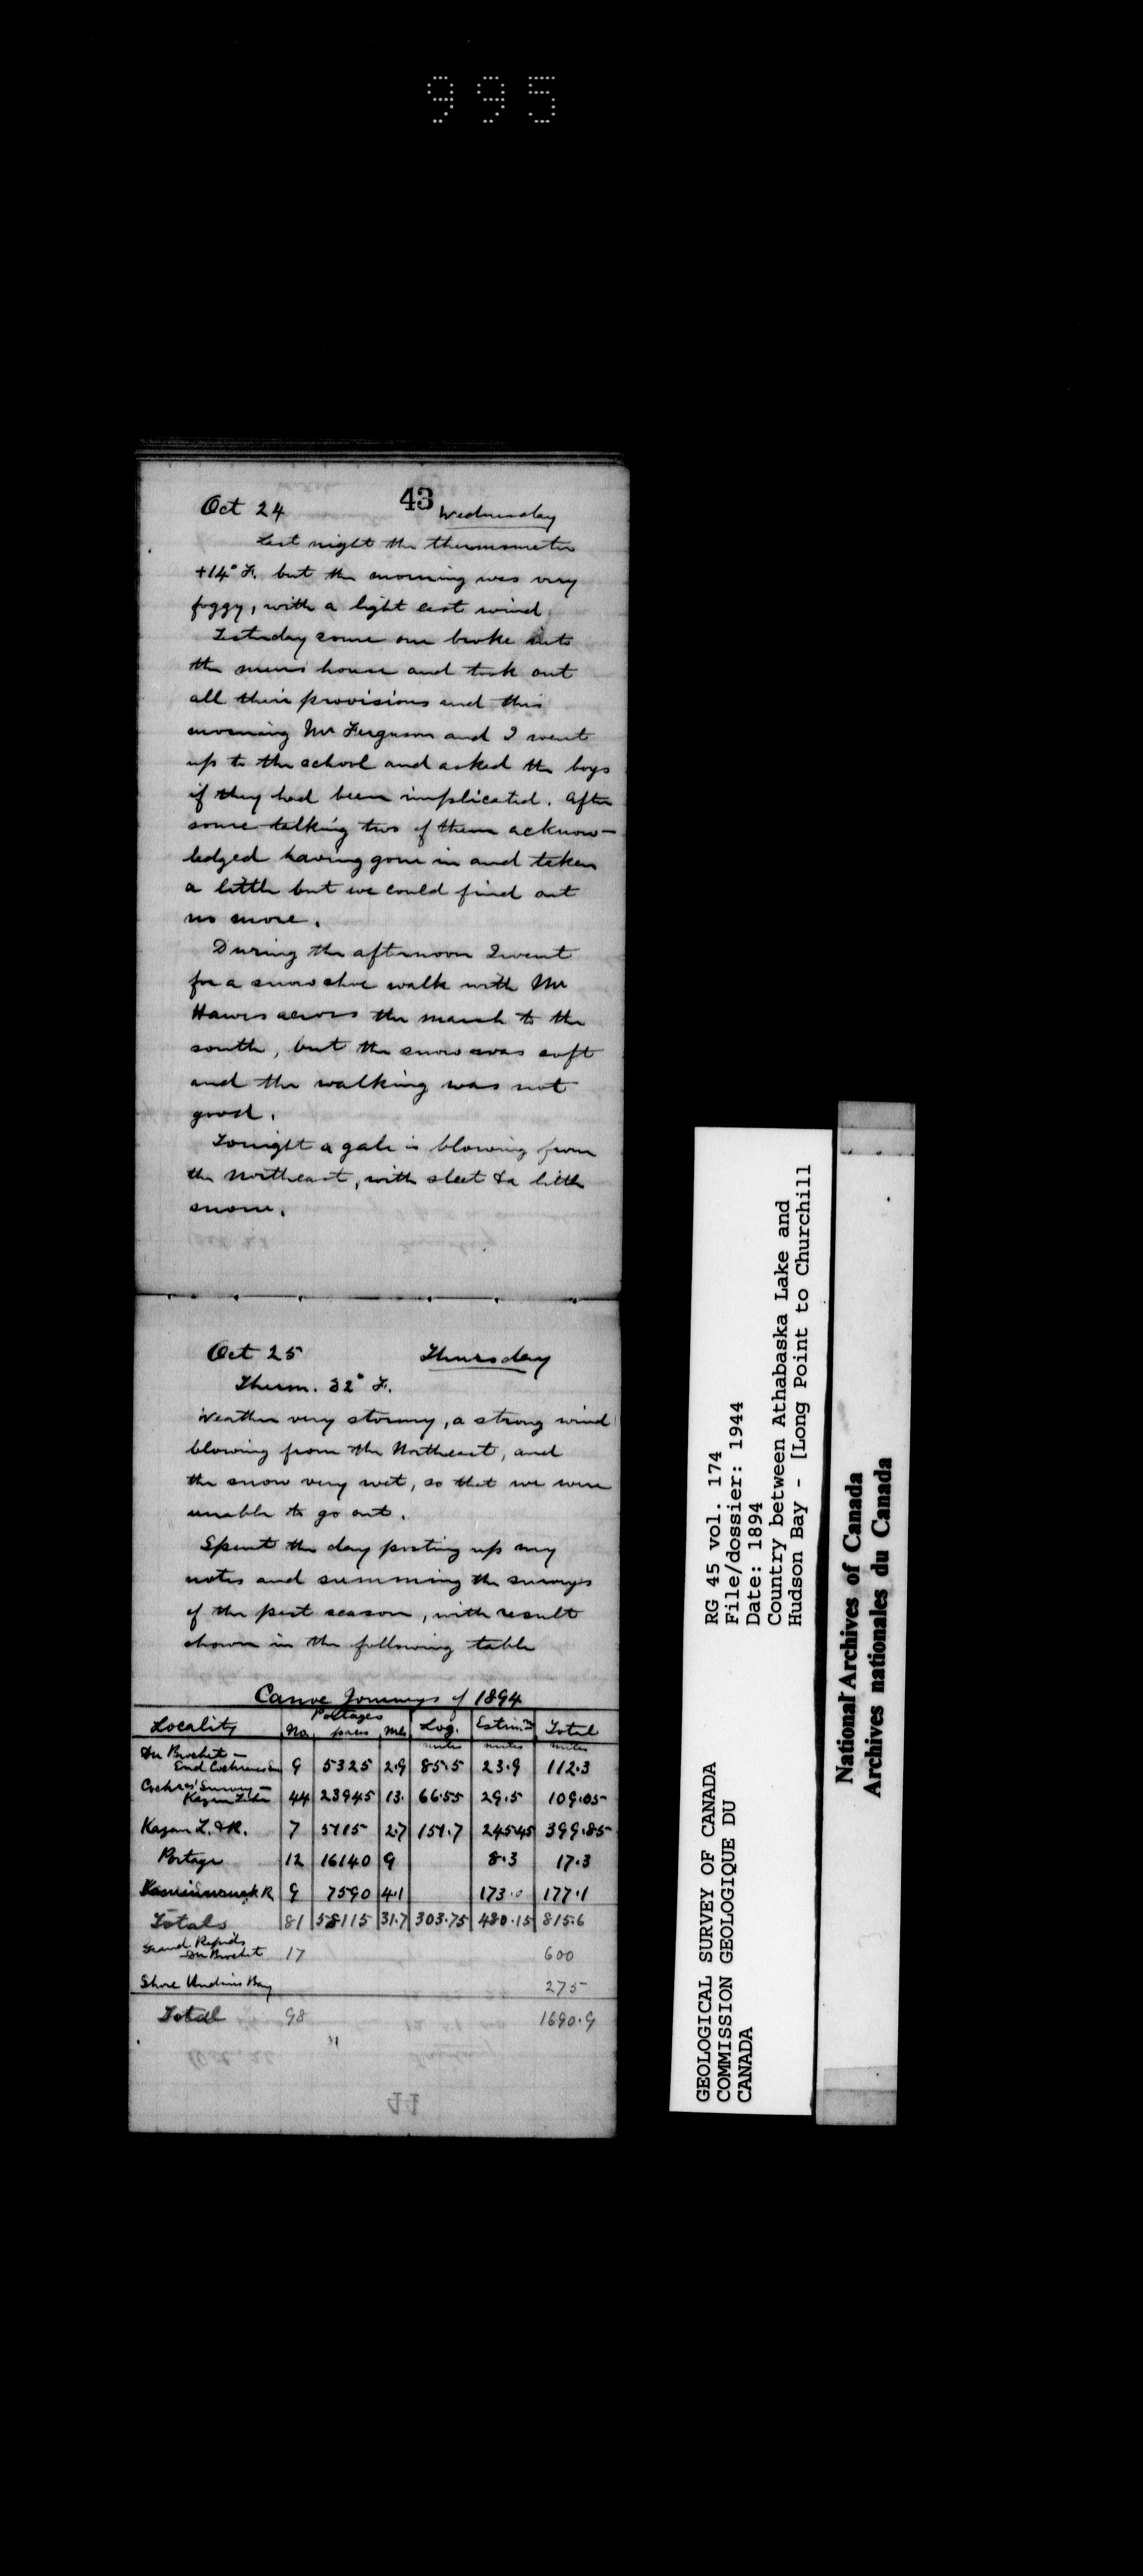 995
43
Oct 24 Wednesday
Last night the thermometer
+14° F. but the morning was very
foggy, with a light east wind
Yesterday some one broke into
the men's house and took out
all their provisions and this
morning Mr Ferguson and I went
up to the school and asked the boys
if they had been implicated. After
some talking two of them acknow-
ledged having gone in and taken
a little but we could find out
no more.
During the afternoon I went
for a snowshoe walk with Mr
Hawes across the marsh to the
south, but the snow was soft
and the walking was not
good.
Tonight a gale is blowing from
the Northeast, with sleet & a little
snow.
Oct 25 Thursday
Therm. 32° F.
Weather very stormy, a strong wind
blowing from the Northeast, and
the snow very wet, so that we were
unable to go out.
Spent the day posting up my
notes and summing the surveys
of the past season, with result
shown in the following table
Canoe Journeys of 1894
Portages
Locality No. paces Mls Log. Estim.d Total
miles miles miles
Du Brochet –
End Cochranes 9 5325 2.9 85.5 23.9 112.3
Cochrs' Survey –
Kazan Lake 44 23945 13. 66.55 29.5 109.05
Kazan L. & R. 7 5115 2.7 151.7 245.45 399.85
Portage 12 16140 9 8.3 17.3
R. 9 7590 4.1 173.0 177.1
Totals 81 58115 31.7 303.75 480.15 815.6
Grand Rapids
Du Brochet 17 600
Shore Hudsons Bay 275
Total 98 1690.9
GEOLOGICAL SURVEY OF CANADA
COMMISSION GEOLOGIQUE DU
CANADA
RG 45 vol. 174
File/dossier: 1944
Date: 1894
Country between Athabaska Lake and
Hudson Bay - [Long Point to Churchill
National Archives of Canada
Archives nationales du Canada